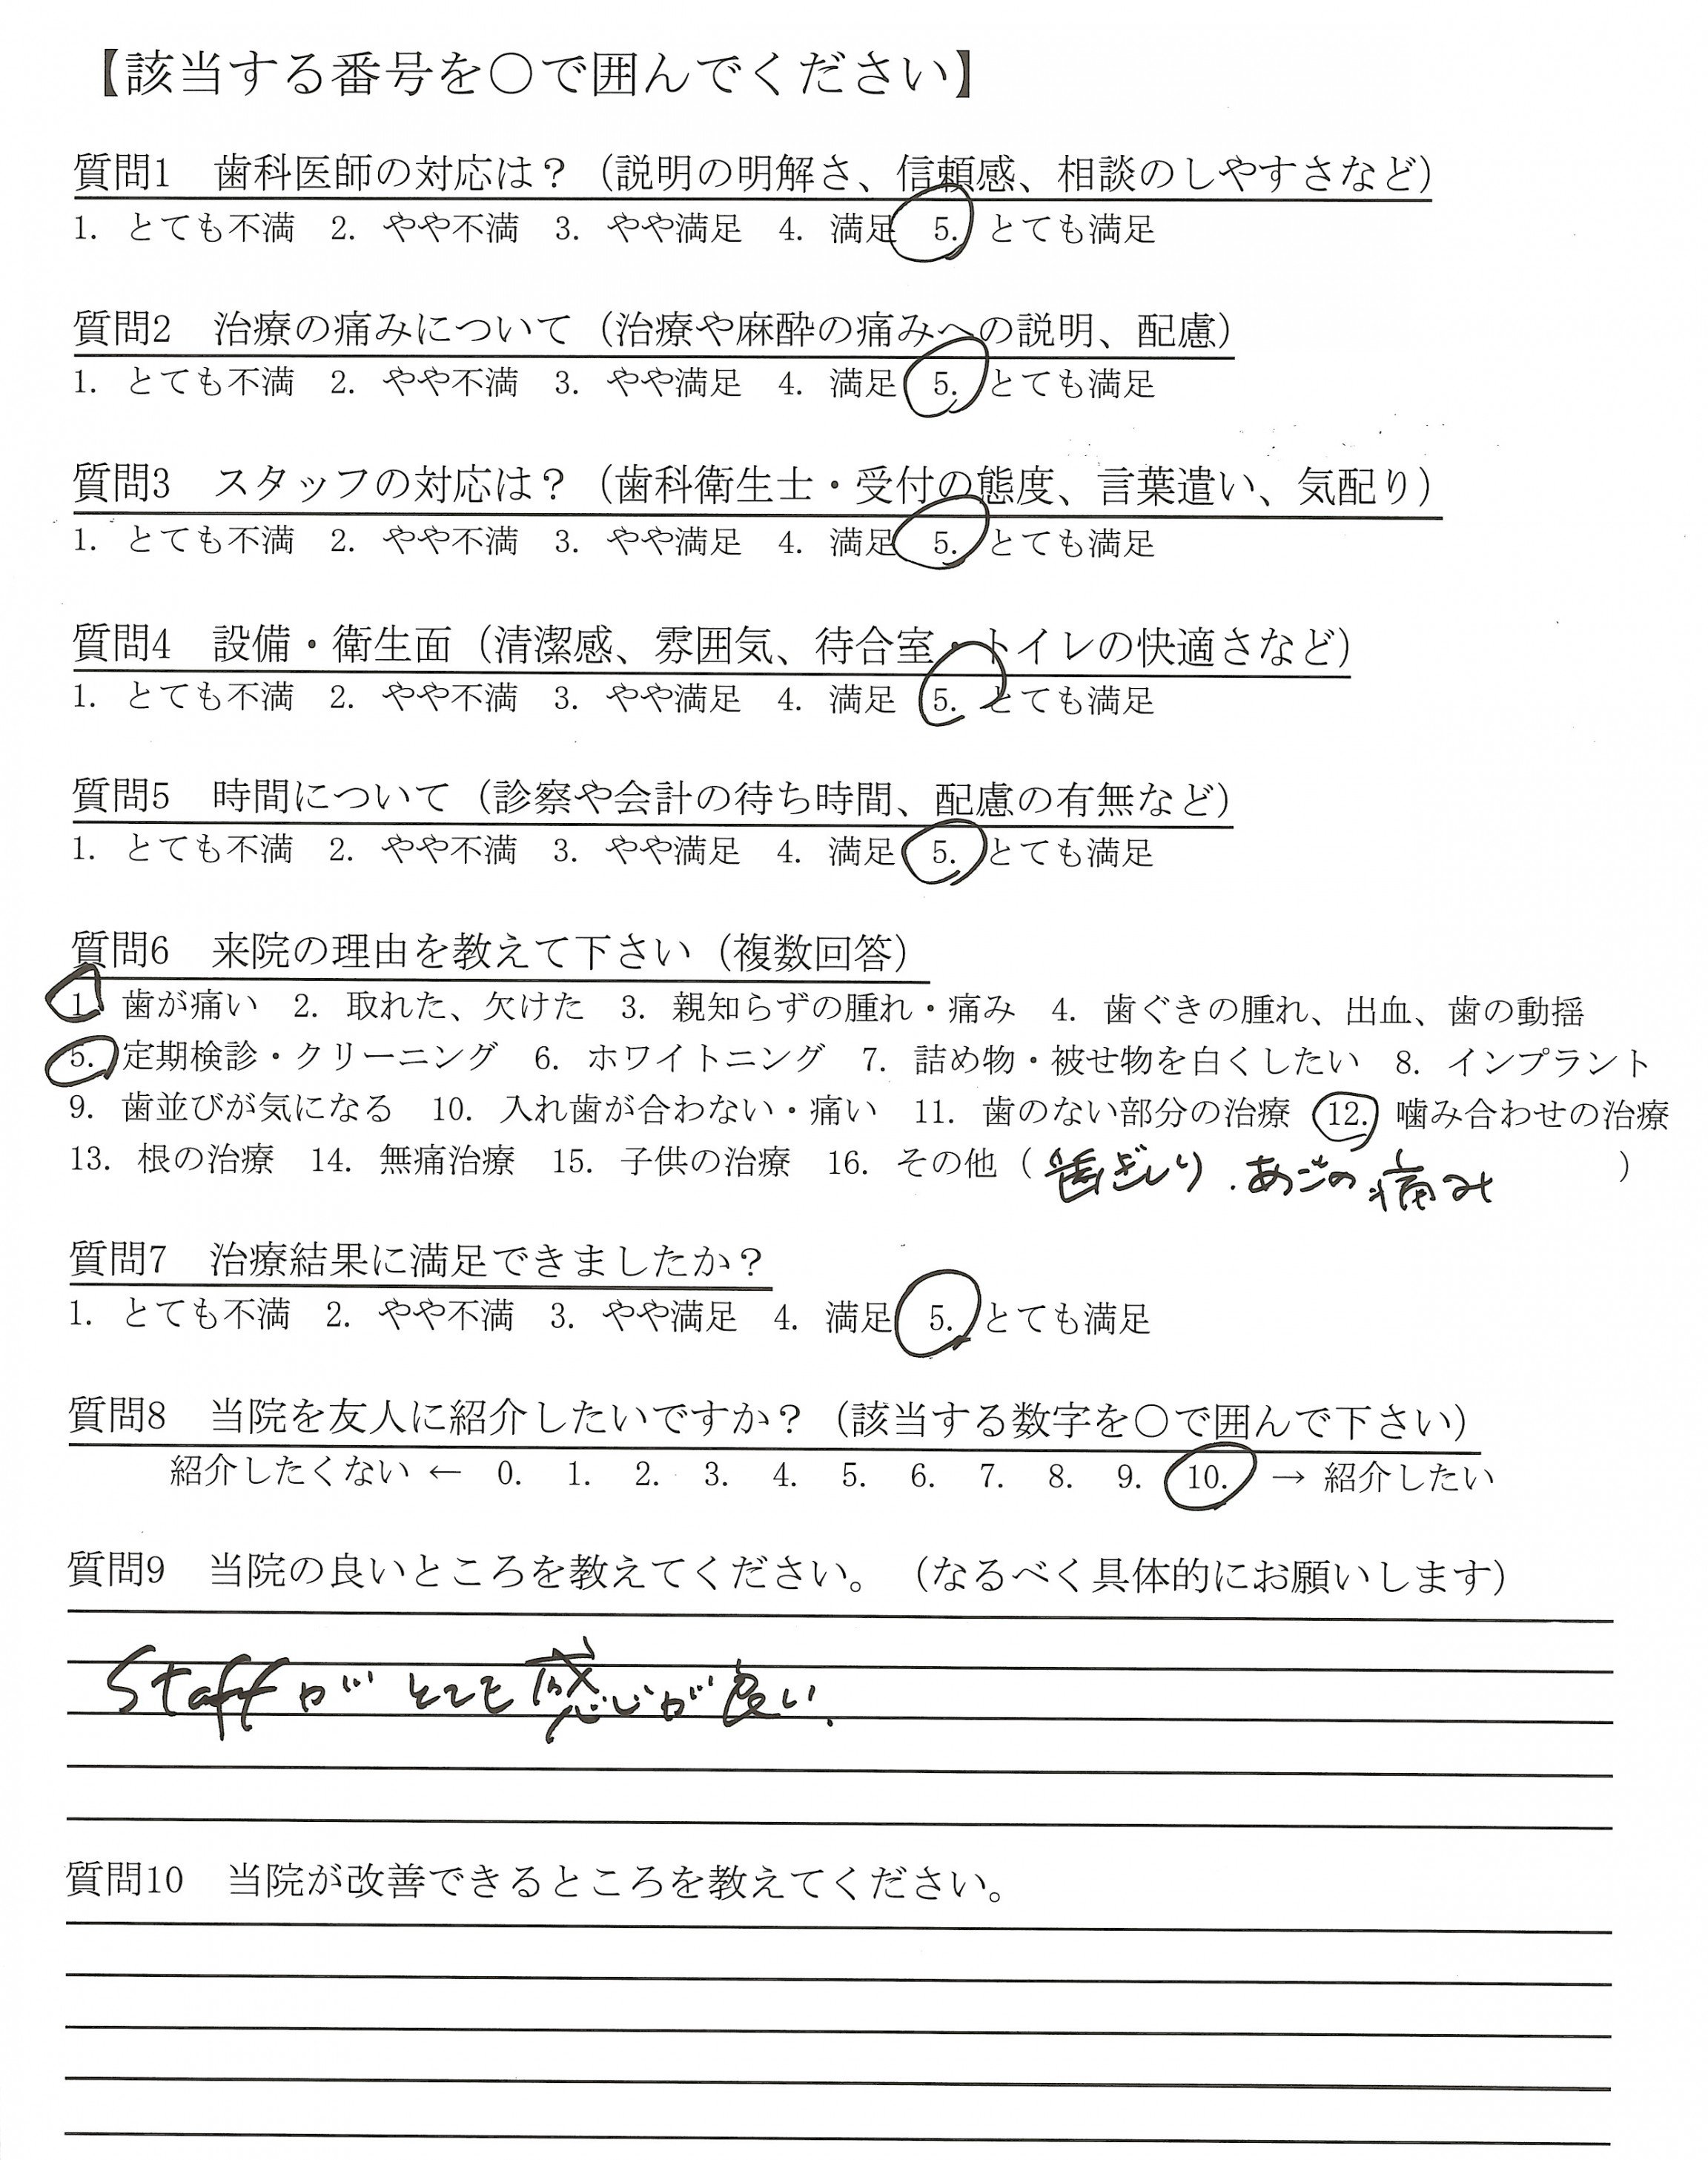 【該当する番号を○で囲んでください】
質問1　歯科医師の対応は？（説明の明解さ、信頼感、相談のしやすさなど）
1. とても不満　2. やや不満　3. やや満足　4. 満足　5. とても満足
質問2　治療の痛みについて（治療や麻酔の痛みへの説明、配慮）
1. とても不満　2. やや不満　3. やや満足　4. 満足　5. とても満足
質問3　スタッフの対応は？（歯科衛生士・受付の態度、言葉遣い、気配り）
1. とても不満　2. やや不満　3. やや満足　4. 満足　5. とても満足
質問4　設備・衛生面（清潔感、雰囲気、待合室・トイレの快適さなど）
1. とても不満　2. やや不満　3. やや満足　4. 満足　5. とても満足
質問5　時間について（診察や会計の待ち時間、配慮の有無など）
1. とても不満　2. やや不満　3. やや満足　4. 満足　5. とても満足
質問6　来院の理由を教えて下さい（複数回答）
1. 歯が痛い　2. 取れた、欠けた　3. 親知らずの腫れ・痛み　4. 歯ぐきの腫れ、出血、歯の動揺
5. 定期検診・クリーニング　6. ホワイトニング　7. 詰め物・被せ物を白くしたい　8. インプラント
9. 歯並びが気になる　10. 入れ歯が合わない・痛い　11. 歯のない部分の治療　12. 噛み合わせの治療
13. 根の治療　14. 無痛治療　15. 子供の治療　16. その他（歯ぎしり．あごの痛み）
質問7　治療結果に満足できましたか？
1. とても不満　2. やや不満　3. やや満足　4. 満足　5. とても満足
質問8　当院を友人に紹介したいですか？（該当する数字を○で囲んで下さい）
紹介したくない ← 0. 1. 2. 3. 4. 5. 6. 7. 8. 9. 10. → 紹介したい
質問9　当院の良いところを教えてください。（なるべく具体的にお願いします）
Staffがとても感じが良い．
質問10　当院が改善できるところを教えてください。